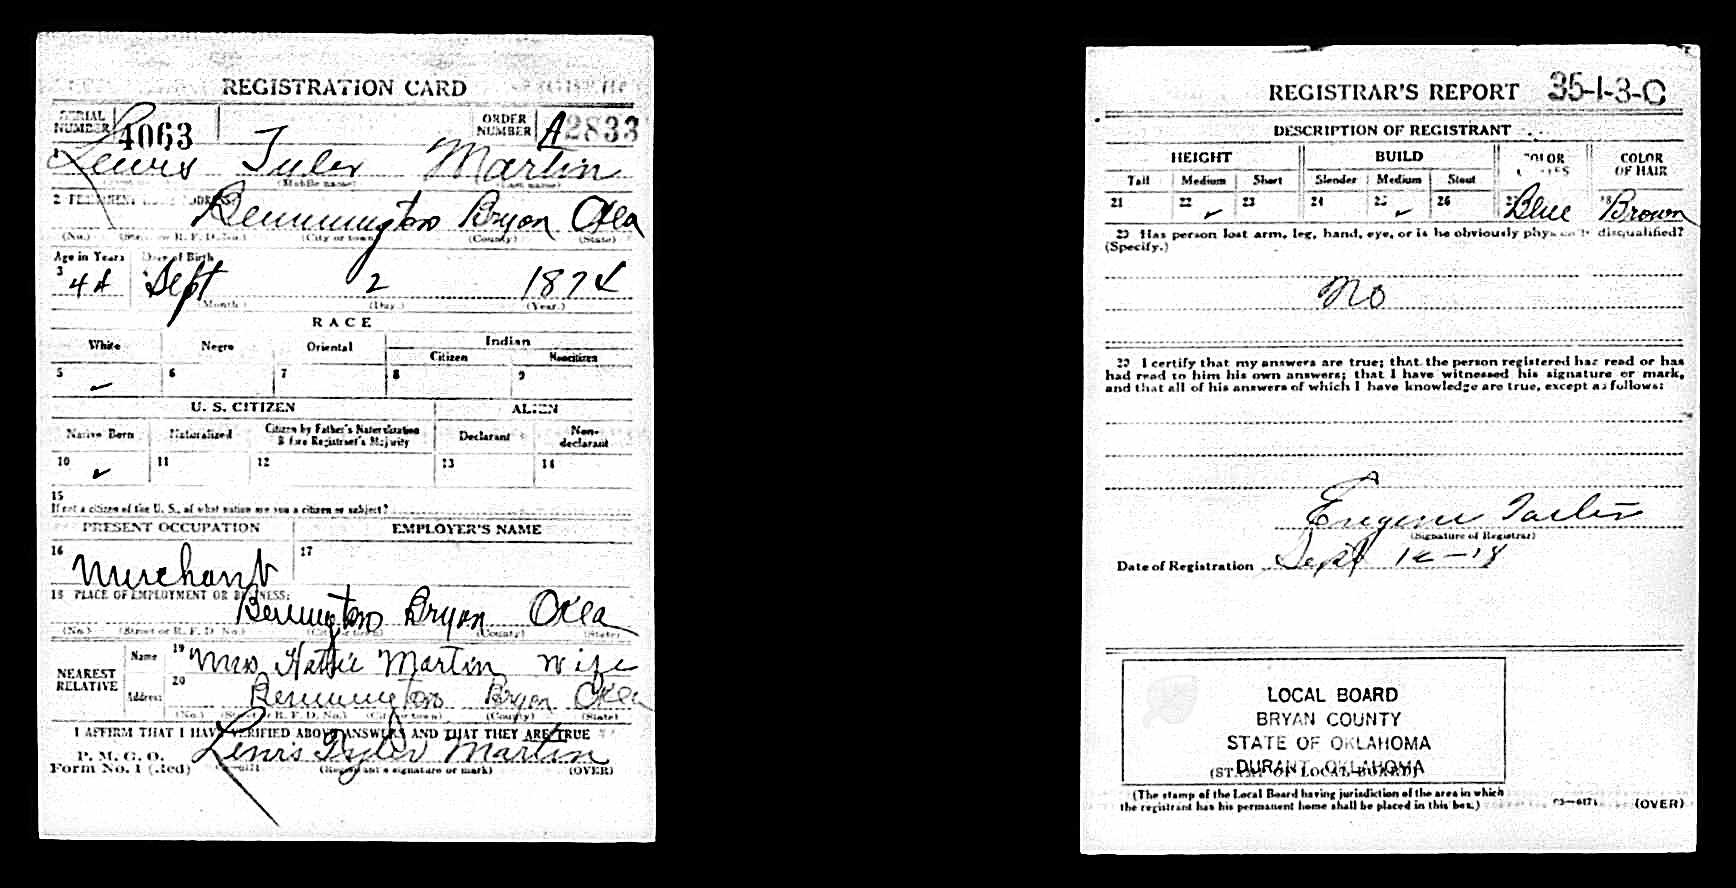 REGISTRATION CARD
SERIAL NUMBER 4063
ORDER NUMBER A2833
1 Lewis Tyler Martin
(Middle name) (Last name)
2 PERMANENT HOME ADDRESS:
Bennington Bryan Okla
(No.) (Street or R. F. D. No.) (City or town) (County) (State)
Age in Years Date of Birth
3 44 Sept 2 1874
(Month.) (Day.) (Year.)
RACE
White Negro Oriental Indian
Citizen Noncitizen
5 ✓ 6 7 8 9
U. S. CITIZEN ALIEN
Native Born Naturalized Citizen by Father's Naturalization Before Registrant's Majority Declarant Non-declarant
10 ✓ 11 12 13 14
15
If not a citizen of the U. S., of what nation are you a citizen or subject?
PRESENT OCCUPATION EMPLOYER'S NAME
16 Merchant 17
18 PLACE OF EMPLOYMENT OR BUSINESS:
Bennington Bryan Okla
(No.) (Street or R. F. D. No.) (City or town) (County) (State)
NEAREST RELATIVE
Name 19 Mrs Hattie Martin wife
Address 20 Bennington Bryan Okla
(No.) (Street or R. F. D. No.) (City or town) (County) (State)
I AFFIRM THAT I HAVE VERIFIED ABOVE ANSWERS AND THAT THEY ARE TRUE
P. M. G. O.
Form No. 1 (Red) Lewis Tyler Martin
(Registrant's signature or mark) (OVER)
REGISTRAR'S REPORT 35-1-3-C
DESCRIPTION OF REGISTRANT
HEIGHT BUILD COLOR OF EYES COLOR OF HAIR
Tall Medium Short Slender Medium Stout
21 22 ✓ 23 24 25 ✓ 26 27 Blue 28 Brown
29 Has person lost arm, leg, hand, eye, or is he obviously physically disqualified?
(Specify.)
No
30 I certify that my answers are true; that the person registered has read or has
had read to him his own answers; that I have witnessed his signature or mark,
and that all of his answers of which I have knowledge are true, except as follows:
Eugene
(Signature of Registrar)
Date of Registration Sept 12-18
LOCAL BOARD
BRYAN COUNTY
STATE OF OKLAHOMA
DURANT, OKLAHOMA
(STAMP OF LOCAL BOARD)
(The stamp of the Local Board having jurisdiction of the area in which
the registrant has his permanent home shall be placed in this box.)
03—6171 (OVER)